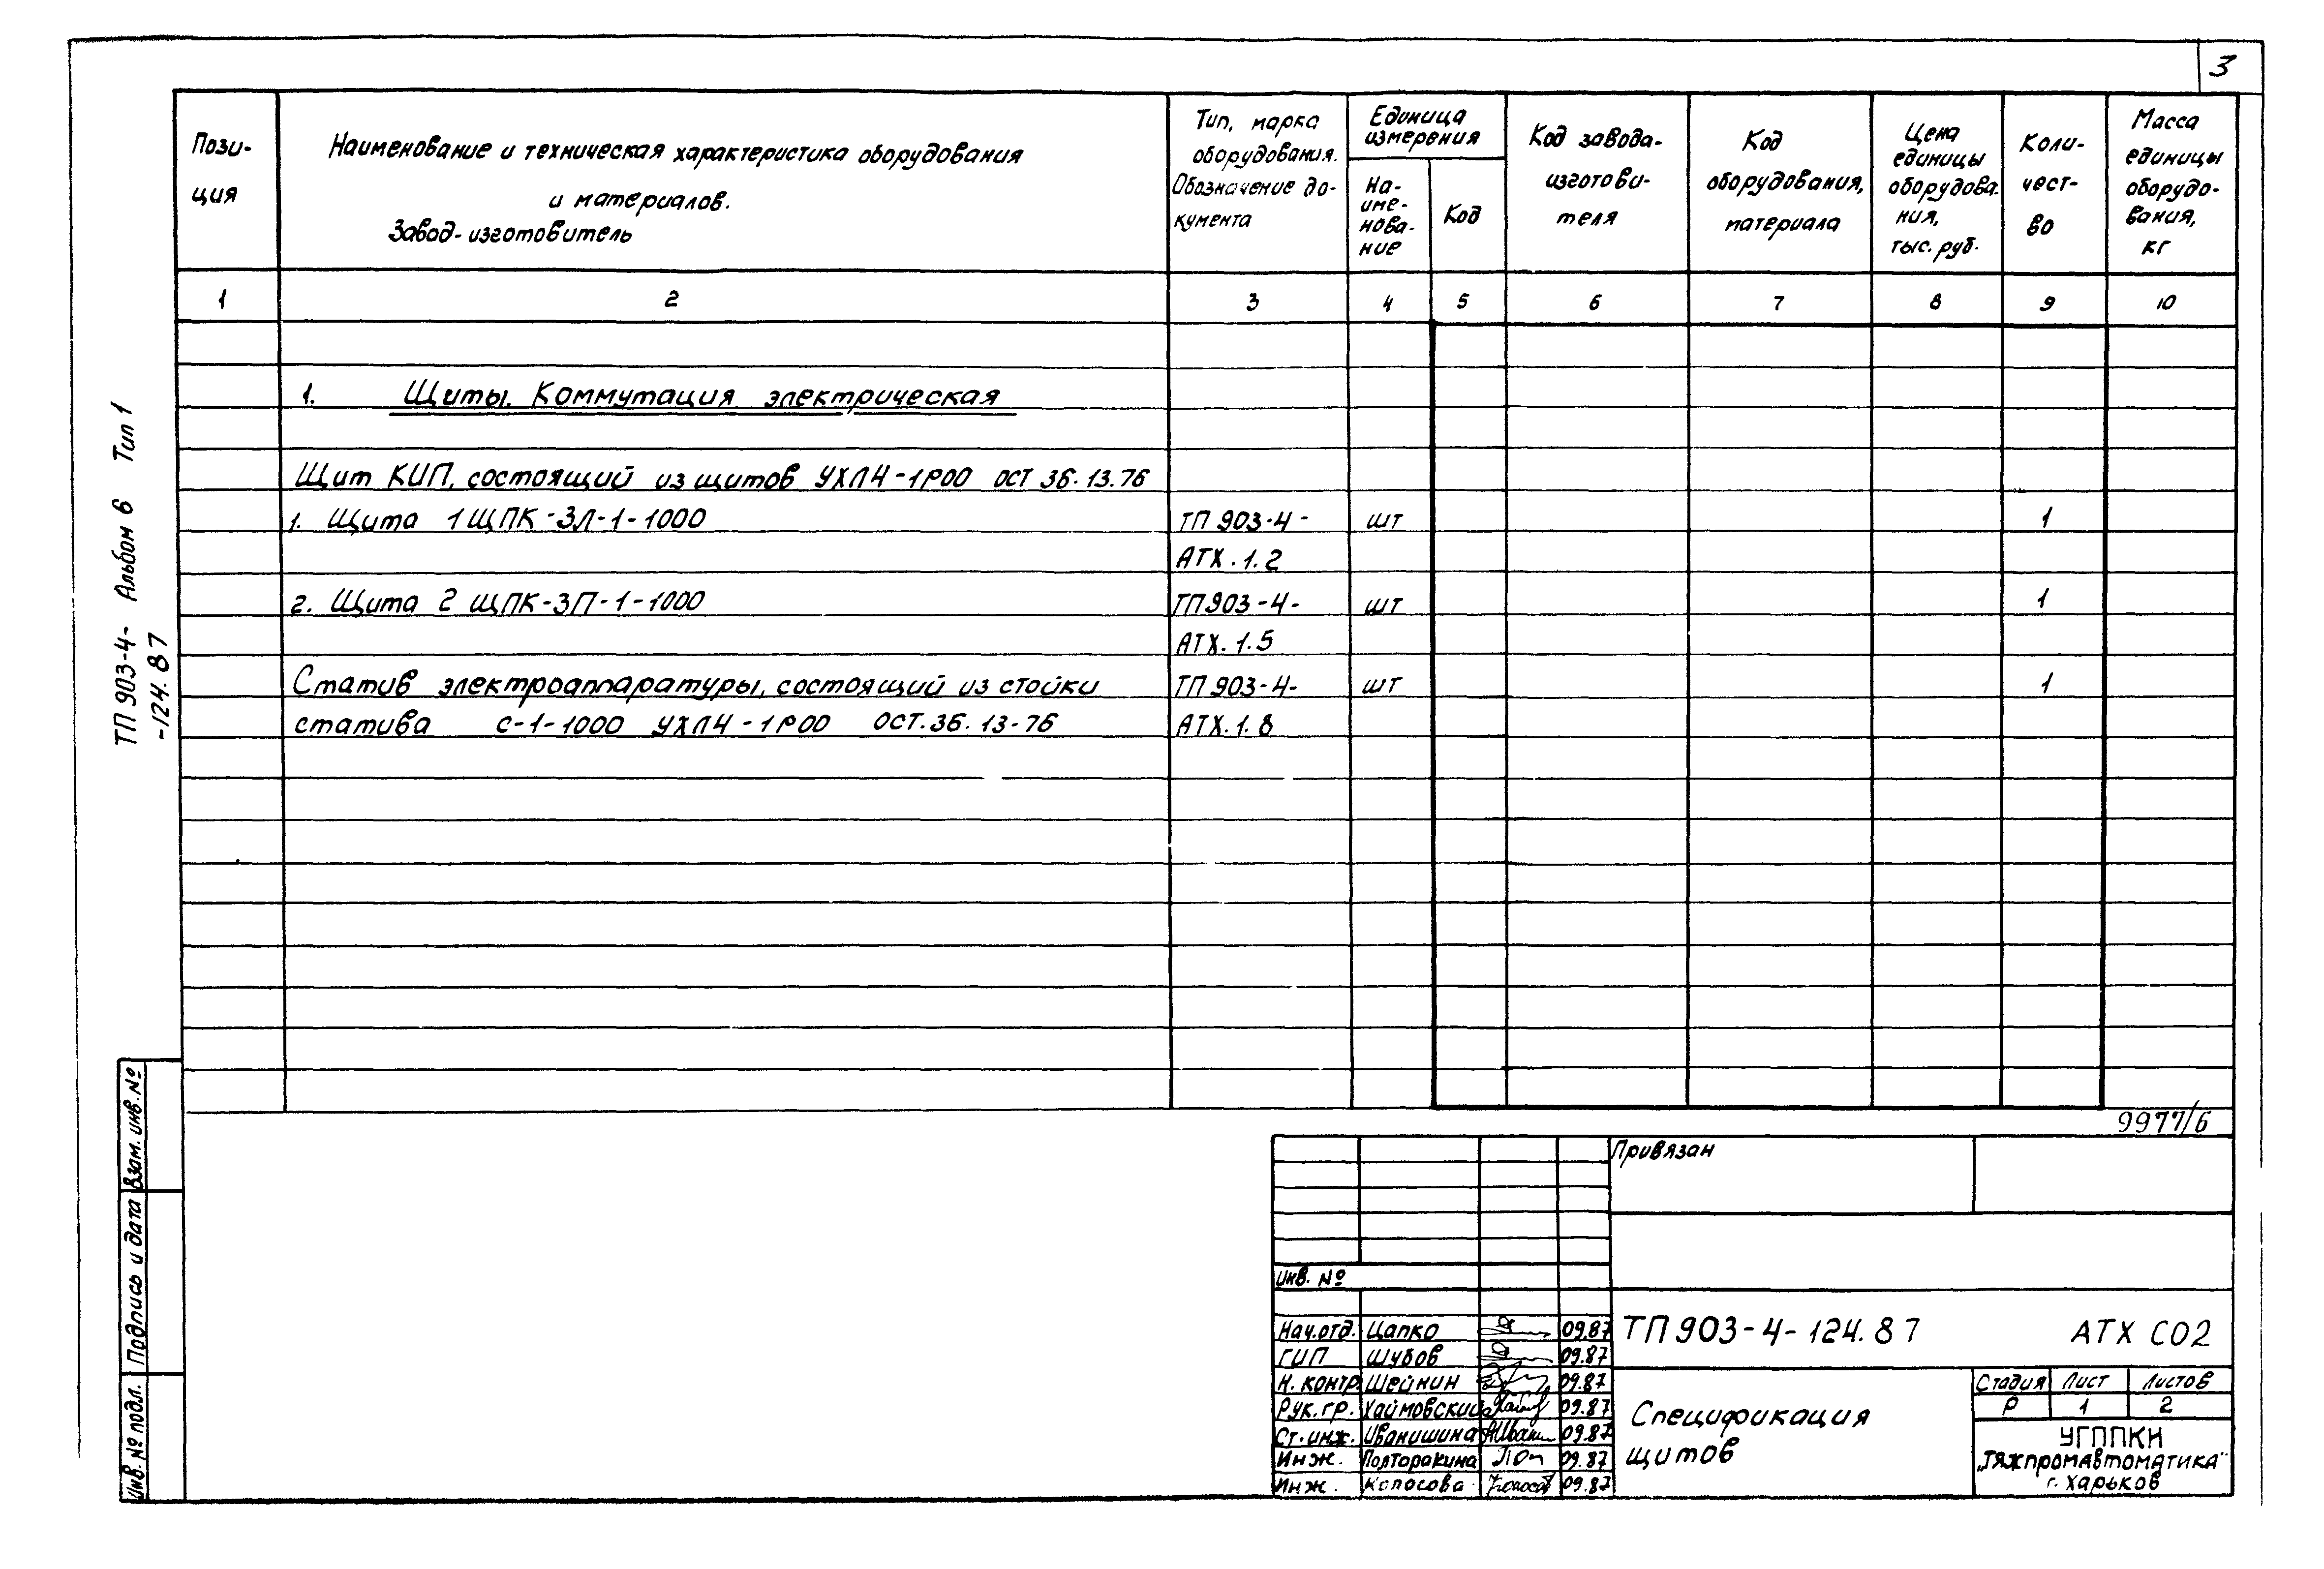 3
Пози-
ция
Наименование и техническая характеристика оборудования
и материалов.
Завод-изготовитель
Тип, марка
оборудования.
Обозначение до-
кумента
Единица
измерения
На-
име-
нова-
ние
Код
Код завода-
изготови-
теля
Код
оборудования,
материала
Цена
единицы
оборудова-
ния,
тыс. руб.
Коли-
чест-
во
Масса
единицы
оборудо-
вания,
кг
1 2 3 4 5 6 7 8 9 10
1. Щиты. Коммутация электрическая
Щит КИП, состоящий из щитов УХЛ4-1Р00 ОСТ 36.13.76
1. Щита 1 ЩПК-ЗЛ-1-1000 ТП 903-4- шт 1
АТХ.1.2
2. Щита 2 ЩПК-ЗП-1-1000 ТП903-4- шт 1
АТХ.1.5
Статив электроаппаратуры, состоящий из стойки ТП 903-4- шт 1
статива С-1-1000 УХЛ4-1Р00 ОСТ.36.13-76 АТХ.1.8
ТП 903-4- Альбом 6 Тип 1
-124.87
Взам. инв. №
Подпись и дата
Инв. № подл.
9977/6
Привязан
Инв. №
Нач.отд. Цапко 09.87
ГИП Шубов 09.87
Н. контр. Шейнин 09.87
Рук. гр. Хаймовский 09.87
Ст. инж. Иванишина 09.87
Инж. Полторакина 09.87
Инж. Колосова 09.87
ТП 903-4-124.87 АТХ СО2
Спецификация
щитов
Стадия Лист Листов
Р 1 2
УГППКИ
„Тяжпромавтоматика"
г. Харьков